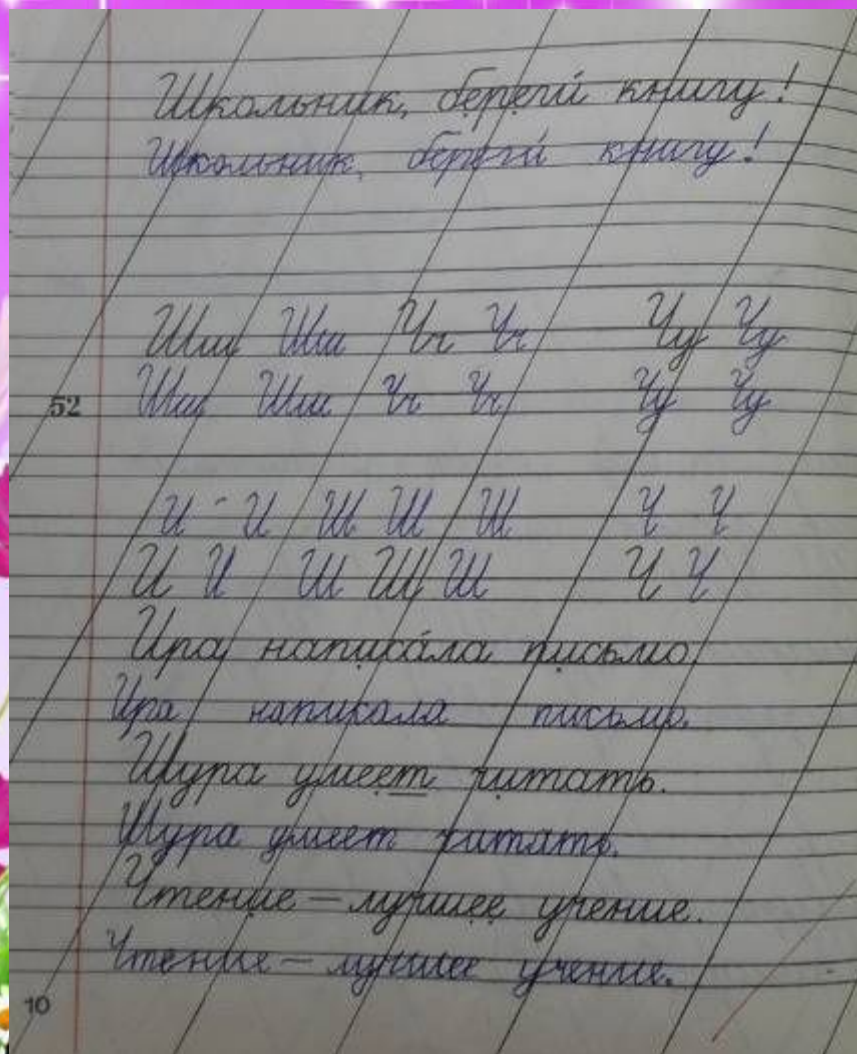 Школьник, береги́ книгу!
Школьник, береги́ книгу!
Шш Шш Чч Чч Чу Чу
52 Шш Шш Чч Чч Чу Чу
И И Ш Ш Ш Ч Ч
И И Ш Ш Ш Ч Ч
Ира написа́ла письмо.
Ира написала письмо.
Шура умеет читать.
Шура умеет читать.
Чтение — лучшее учение.
Чтение — лучшее учение.
10